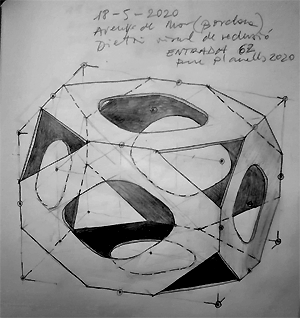 18-5-2020
Avenir de (Barcelona)
Dietari visual de reclusió
ENTRADA 62
Planells 2020